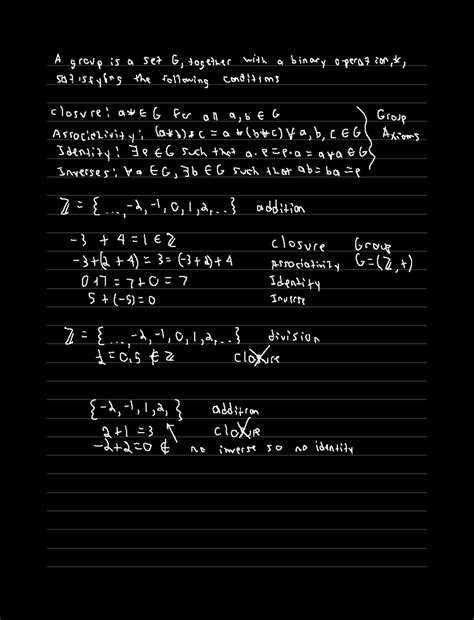 A group is a set G, together with a binary operation, *,
satisfying the following conditions
closure: a*∈G for all a,b ∈ G
Associativity: (a*b)*c = a*(b*c) ∀ a, b, c ∈ G
Identity: ∃e∈G such that a·e=e·a = a ∀a∈G
Inverses: ∀a∈G, ∃b∈G such that ab=ba=e
Group Axioms
ℤ = {...,-2,-1,0,1,2,...} addition
-3 + 4 = 1 ∈ ℤ closure Group
-3+(2+4) = 3 = (-3+2)+4 Associativity G=(ℤ,+)
0+7 = 7+0 = 7 Identity
5+(-5)=0 Inverse
ℤ = {...,-2,-1,0,1,2,...} division
=0.5 ∉ ℤ closure
{-2,-1,1,2,} addition
2+1=3 closure
-2+2=0 ∉ no inverse so no identity